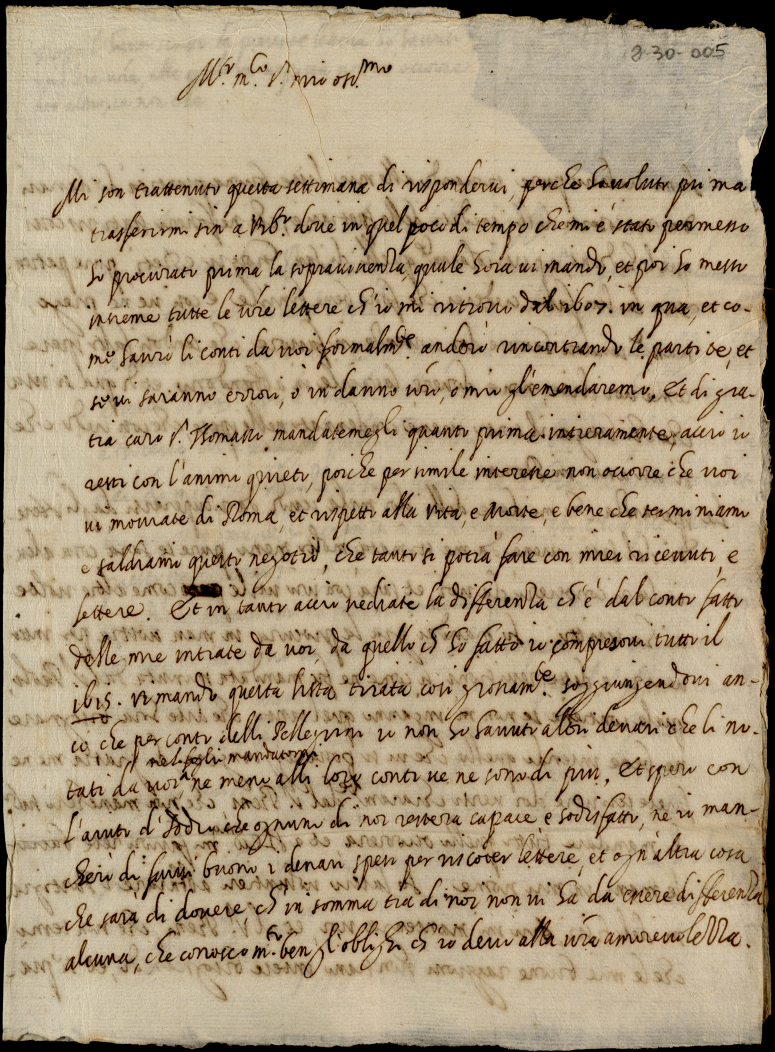 2-30-005
M.r m.co s.r mio oss.mo
Mi son trattenuto questa settimana di rispondervi, perche ho voluto prima
trasferirmi sin a Vib.o dove in quel poco di tempo che mi è stato permesso
ho procurato prima la sopraviuenza, quale hora vi mando, et poi ho messo
insieme tutte le vre lettere ch'io mi ritrovo dal 1607. in qua, et co-
me havrò li conti da voi formalm.te anderò rincontrando le partite, et
se vi saranno errori, ò in danno vro, o mio gl'emendaremo, Et di gra-
tia caro s.r Thomasso mandatemegli quanto prima intieramente, accio io
resti con l'animo quieto, poiche per simile interesse non occorre che voi
vi moviate di Roma et rispetto alla vita, e morte, e bene che terminiamo
e saldiamo questo negotio, che tanto si potrà fare con miei ricevuti, e
lettere. Et in tanto accio vediate la differenza ch'è dal conto fatto
delle mie intrate da voi, da quello ch'ho fatto io compresovi tutto il
1615. vi mando questa lista tirata così grossam.te soggiungendovi an-
co che per conto delli Pellegrini io non ho havuto altri denari che li no-
tati da voi neli fogli mandatomi ne meno alli loro conti ve ne sono di più, Et spero con
l'aiuto d'Iddio che ognuno di noi restera capace e sodisfatto, ne io man-
cherò di farvi buono i denari spesi per riscoter lettere, et ogn'altra cosa
che sarà di dovere, ch'in somma tra di noi non vi ha da essere differenza
alcuna, che conosco m.to ben gl'oblighi ch'io devo alla vra amorevolezza.